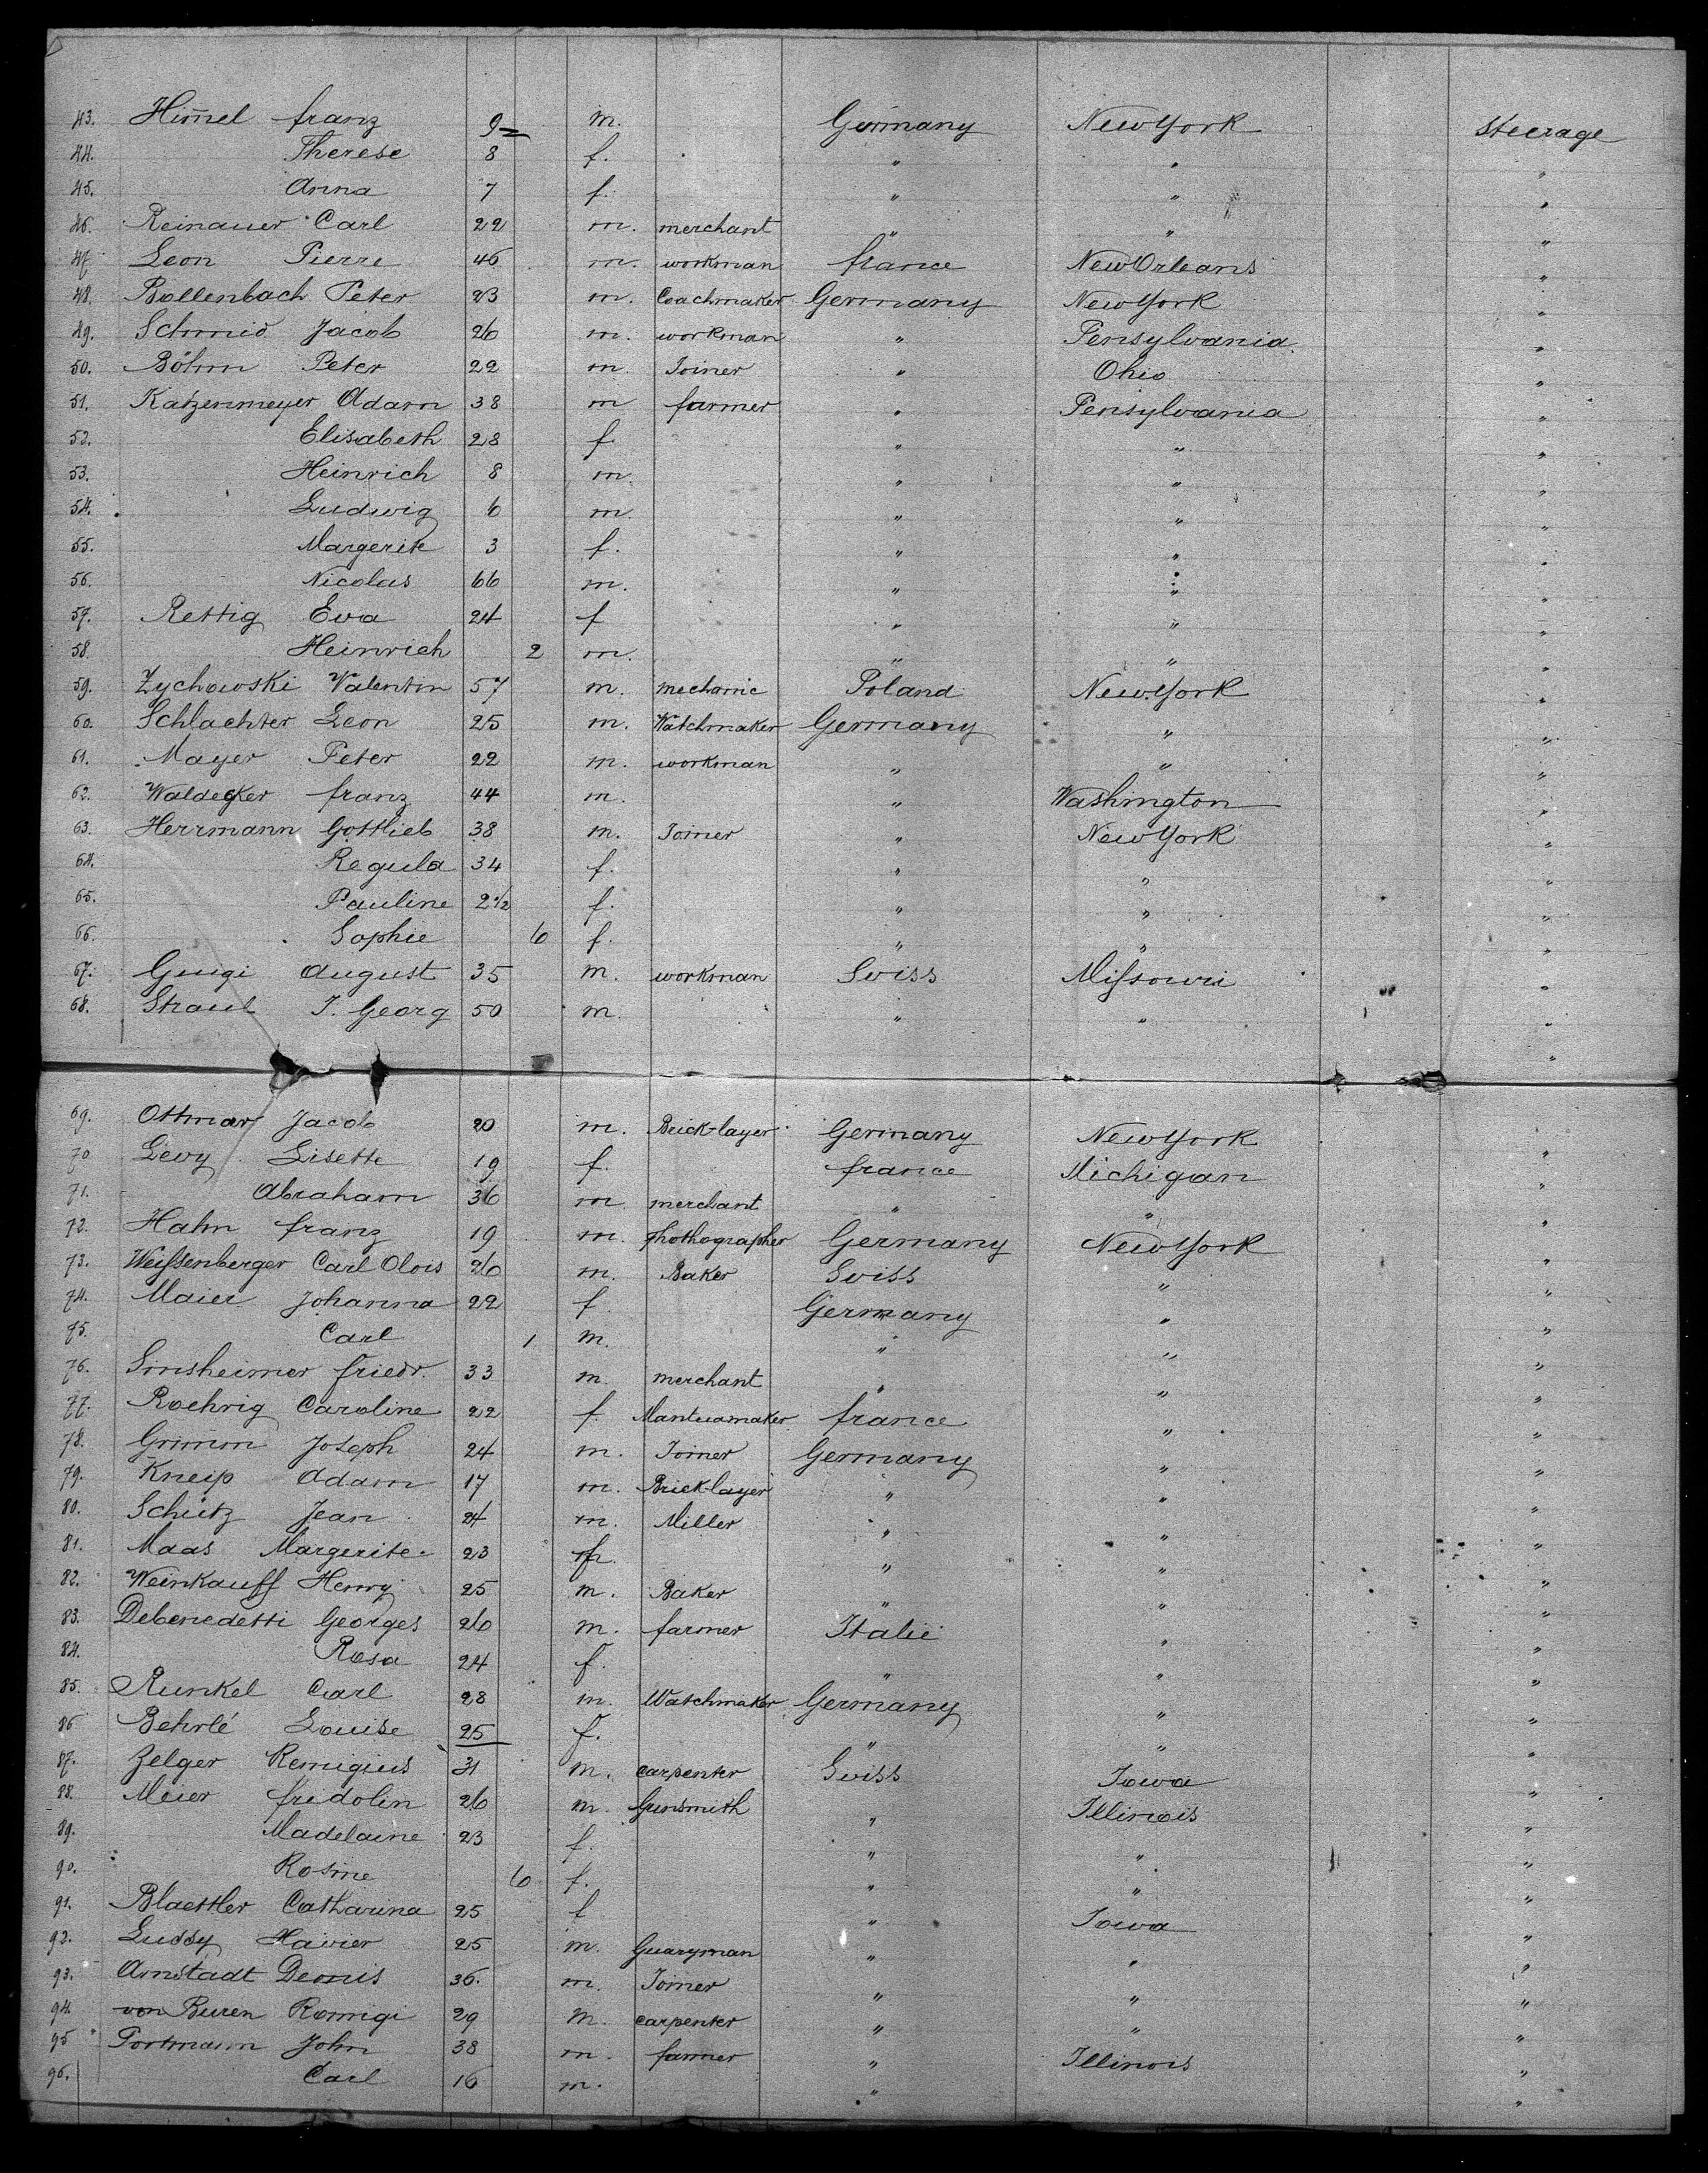 43. Him̄el franz 9= m. Germany NewYork Steerage
44. Therese 8 f. " " "
45. Anna 7 f. " " "
46. Reinauer Carl 22 m. merchant " " "
47. Leon Pierre 46 m. workman france NewOrleans "
48. Bollenbach Peter 23 m. Coachmaker Germany NewYork "
49. Schmid Jacob 26 m. workman " Pensylvania "
50. Böhm Peter 22 m. Joiner " Ohio "
51. Katzenmeyer Adam 38 m farmer " Pensylvania "
52. Elisabeth 28 f. " " "
53. Heinrich 8 m. " " "
54. Ludwig 6 m. " " "
55. Margerite 3 f. " " "
56. Nicolas 66 m. " " "
57. Rettig Eva 24 f " " "
58. Heinrich 2 m. " " "
59. Zychowski Valentin 57 m. mechanic Poland NewYork "
60. Schlachter Leon 25 m. Watchmaker Germany " "
61. Mayer Peter 22 m. workman " " "
62. Waldecker franz 44 m. " Washington "
63. Herrmann Gottlieb 38 m. Joiner " NewYork "
64. Regula 34 f. " " "
65. Pauline 2 1/2 f. " " "
66. Sophie 6 f. " " "
67. August 35 m. workman Swiss Missouri "
68. Straul J. Georg 50 m. " " "
69. Ottmar Jacob 20 m. Brick-layer Germany NewYork "
70 Levy Lisette 19 f. france Michigan "
71. Abraham 36 m merchant " " "
72. Hahn franz 19 m. Phothographer Germany NewYork "
73. Weissenberger Carl Olois 26 m. Baker Swiss " "
74. Maier Johanna 22 f. Germany " "
75. Carl 1 m. " " "
76. Sinsheimer friedr. 33 m. merchant " " "
77. Roehrig Caroline 22 f. Mantuamaker france " "
78. Grimm Joseph 24 m. Joiner Germany " "
79. Kneip Adam 17 m. Brick-layer " " "
80. Schütz Jean 24 m. Miller " " "
81. Maas Margerite 23 f. " " "
82. Weinkauff Henry 25 m. Baker " " "
83. Debenedetti Georges 26 m. farmer Italie " "
84. Rosa 24 f. " " "
85. Runkel Carl 28 m. Watchmaker Germany " "
86 Behrlé Louise 25 f. " " "
87. Zelger Remigius 31 m. carpenter Swiss Iowa "
88. Meier fridolin 26 m. Gunsmith " Illinois "
89. Madelaine 23 f. " " "
90. Rosine 6 f. " " "
91. Blaettler Catharina 25 f " Iowa "
92. Lussy Xavier 25 m. Guaryman " " "
93. Amstadt Deonis 36. m. Joiner " " "
94. von Buren Romigi 29 m. carpenter " " "
95 Portmann John 38 m. farmer " Illinois "
96. Carl 16 m. " "